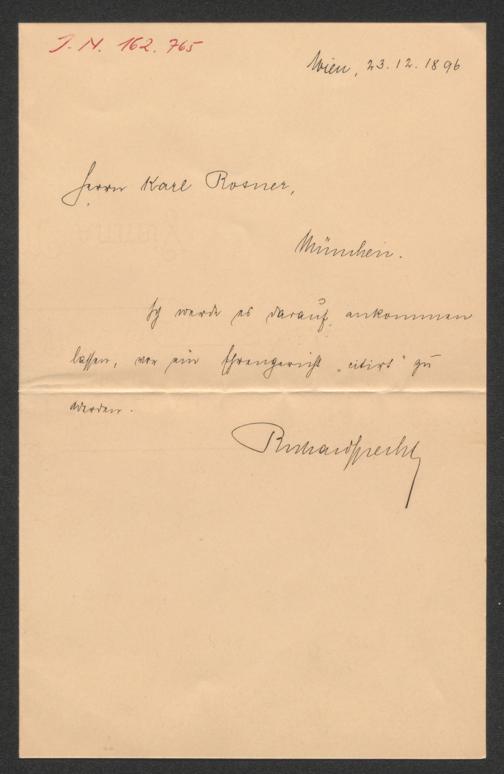 J. N. 162.765
Wien, 23.12.1896
Herrn Karl Rosner,
München.
Ich werde es darauf ankommen
lassen, vor ein Ehrengericht „citirt“ zu
werden.
Richard Specht